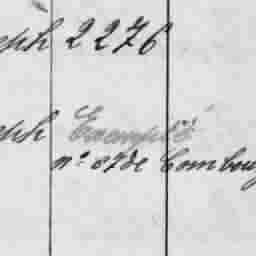 eph 2276
eph Exempté
n° 87 de Combou